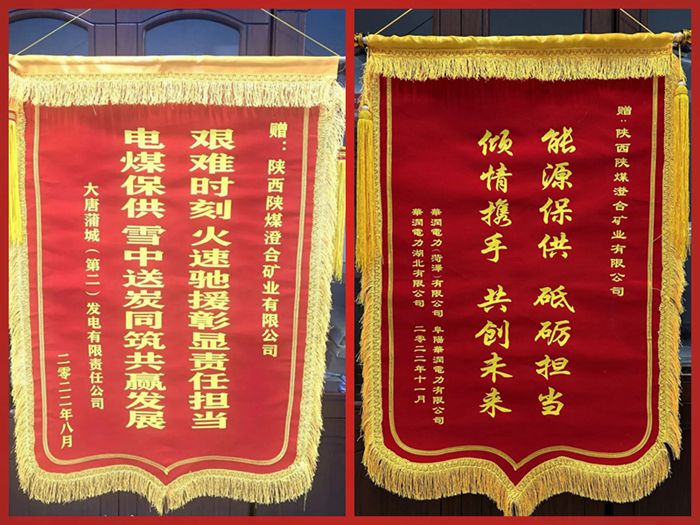 赠：陕西陕煤澄合矿业有限公司
艰难时刻 火速驰援彰显责任担当
电煤保供 雪中送炭同筑共赢发展
大唐蒲城（第二）发电有限责任公司
二零二二年八月
赠：陕西陕煤澄合矿业有限公司
能源保供 砥砺担当
倾情携手 共创未来
華潤電力（菏澤）有限公司 阜陽華潤電力有限公司
華潤電力湖北有限公司 二零二二年十一月